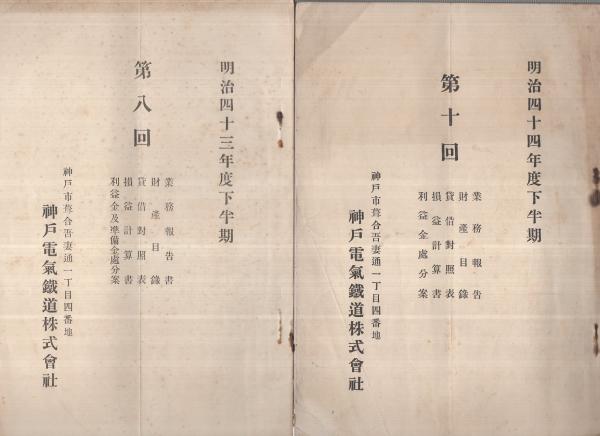 明治四十四年度下半期
第十回
業務報告
財産目錄
貸借對照表
損益計算書
利益金處分案
神戸市葺合吾妻通一丁目四番地
神戸電氣鐵道株式會社
明治四十三年度下半期
第八回
業務報告書
財產目錄
貸借對照表
損益計算書
利益金及準備金處分案
神戸市葺合吾妻通一丁目四番地
神戸電氣鐵道株式會社